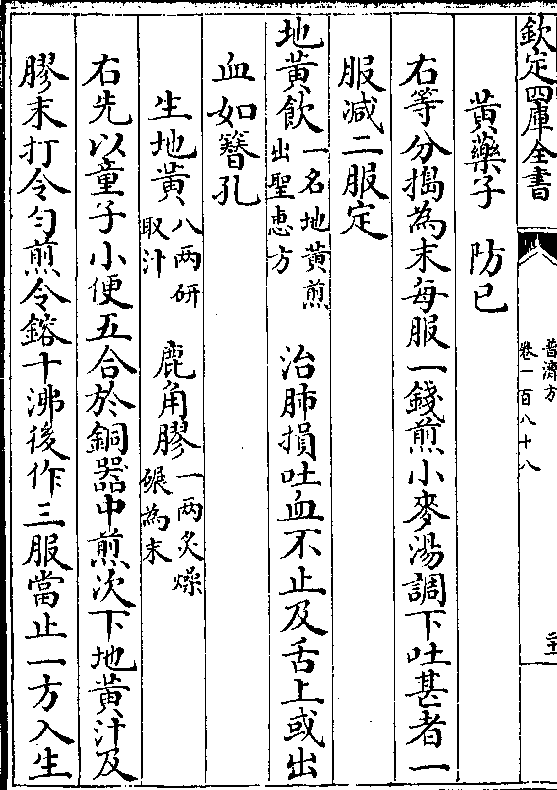 欽定四庫全書
普濟方
卷一百八十八
二十
黃藥子 防已
右等分搗為末每服一錢煎小麥湯調下吐甚者一
服減二服定
地黃飲一名地黃煎
出聖惠方 治肺損吐血不止及舌上或出
血如簪孔
生地黃八两研
取汁 鹿角膠一两炙燥
碾為末
右先以童子小便五合於銅器中煎次下地黃汁及
膠末打令勻煎令鎔十沸後作三服當止一方入生